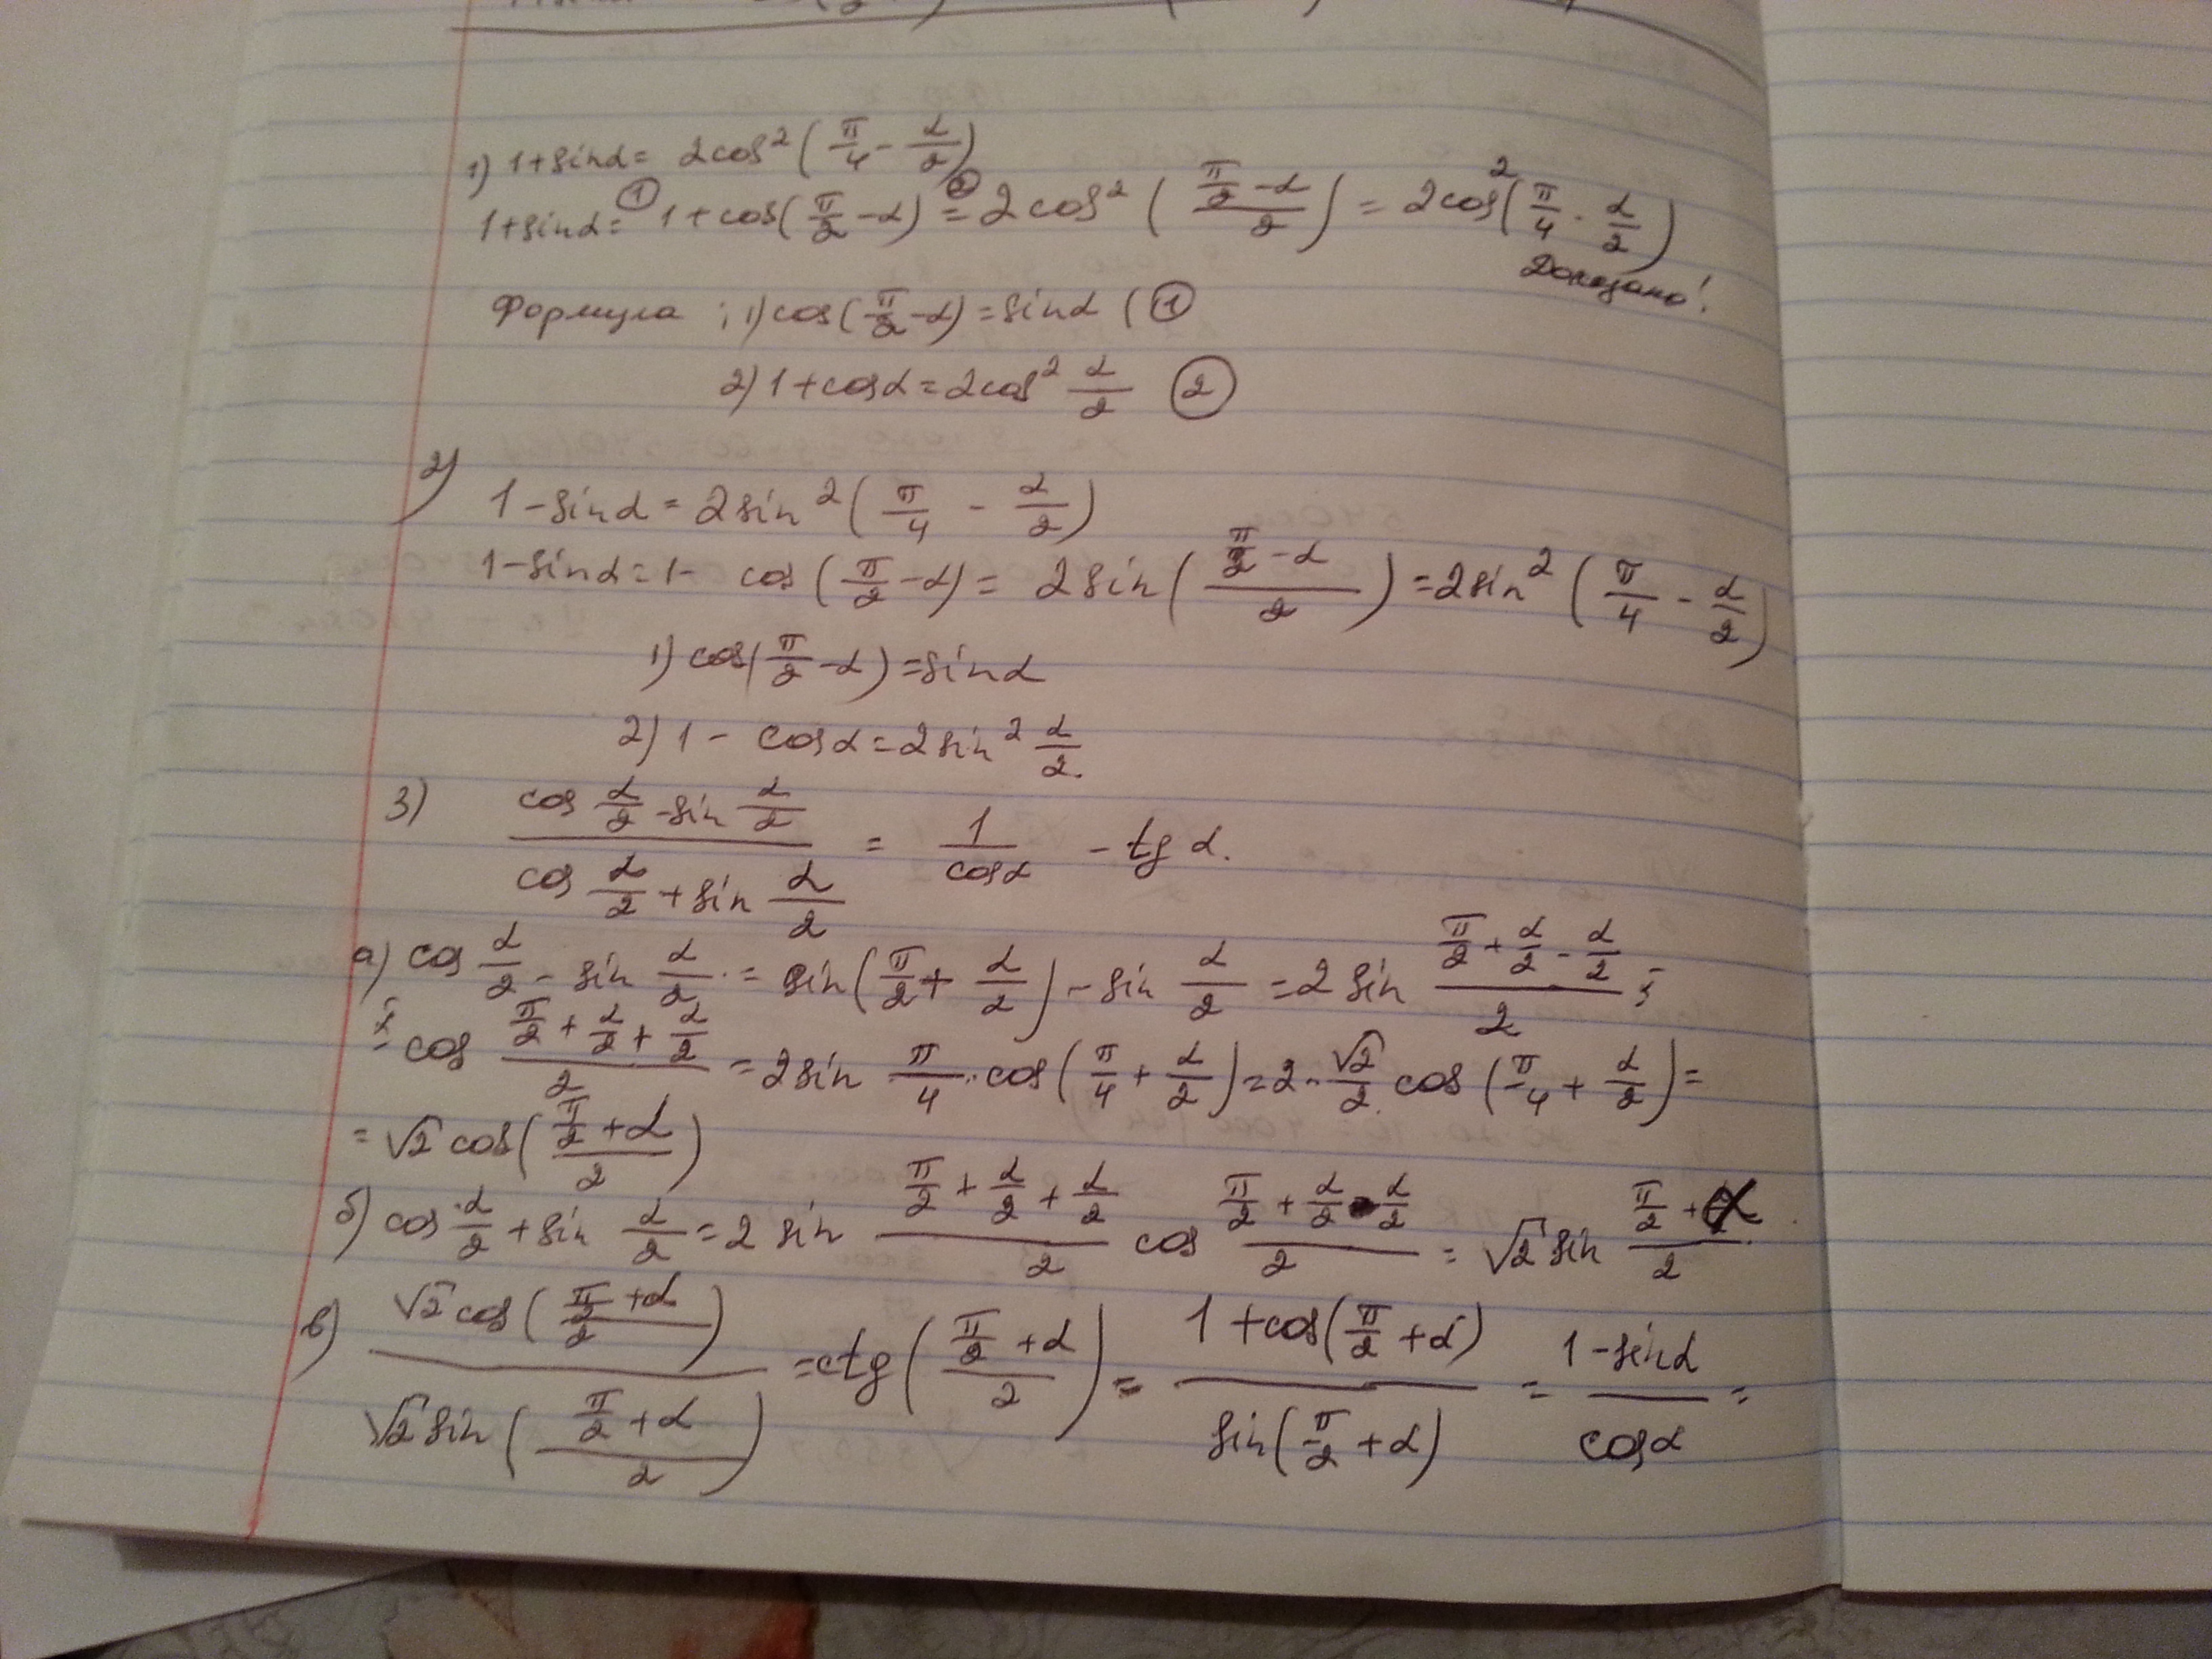 1) 1+sinα = 2cos²(π/4 - α/2)
1+sinα =① 1+cos(π/2 -α) =② 2cos² ((π/2 -α)/2) = 2cos²(π/4 - α/2)
Доказано!
Формула : 1) cos(π/2 -α) = sinα (①
2) 1+cosα = 2cos² α/2 ②
2)
1-sinα = 2sin²(π/4 - α/2)
1-sinα = 1- cos(π/2 -α) = 2sin((π/2 -α)/2) = 2sin²(π/4 - α/2)
1) cos(π/2 -α) = sinα
2) 1 - cosα = 2sin² α/2.
3) (cos α/2 - sin α/2)/(cos α/2 + sin α/2) = 1/cosα - tg α.
а) cos α/2 - sin α/2 = sin(π/2 + α/2) - sin α/2 = 2 sin (π/2 + α/2 - α/2)/2 ×
× cos (π/2 + α/2 + α/2)/2 = 2sin π/4 · cos(π/4 + α/2) = 2 · √2/2 cos(π/4 + α/2) =
= √2 cos((π/2 + α)/2)
б) cos α/2 + sin α/2 = 2 sin (π/2 + α/2 + α/2)/2 cos (π/2 + α/2 - α/2)/2 = √2 sin (π/2 + α)/2
в) √2 cos((π/2 + α)/2)/√2 sin((π/2 + α)/2) = ctg((π/2 + α)/2) = (1+cos(π/2 + α))/sin(π/2 + α) = (1-sinα)/cosα =